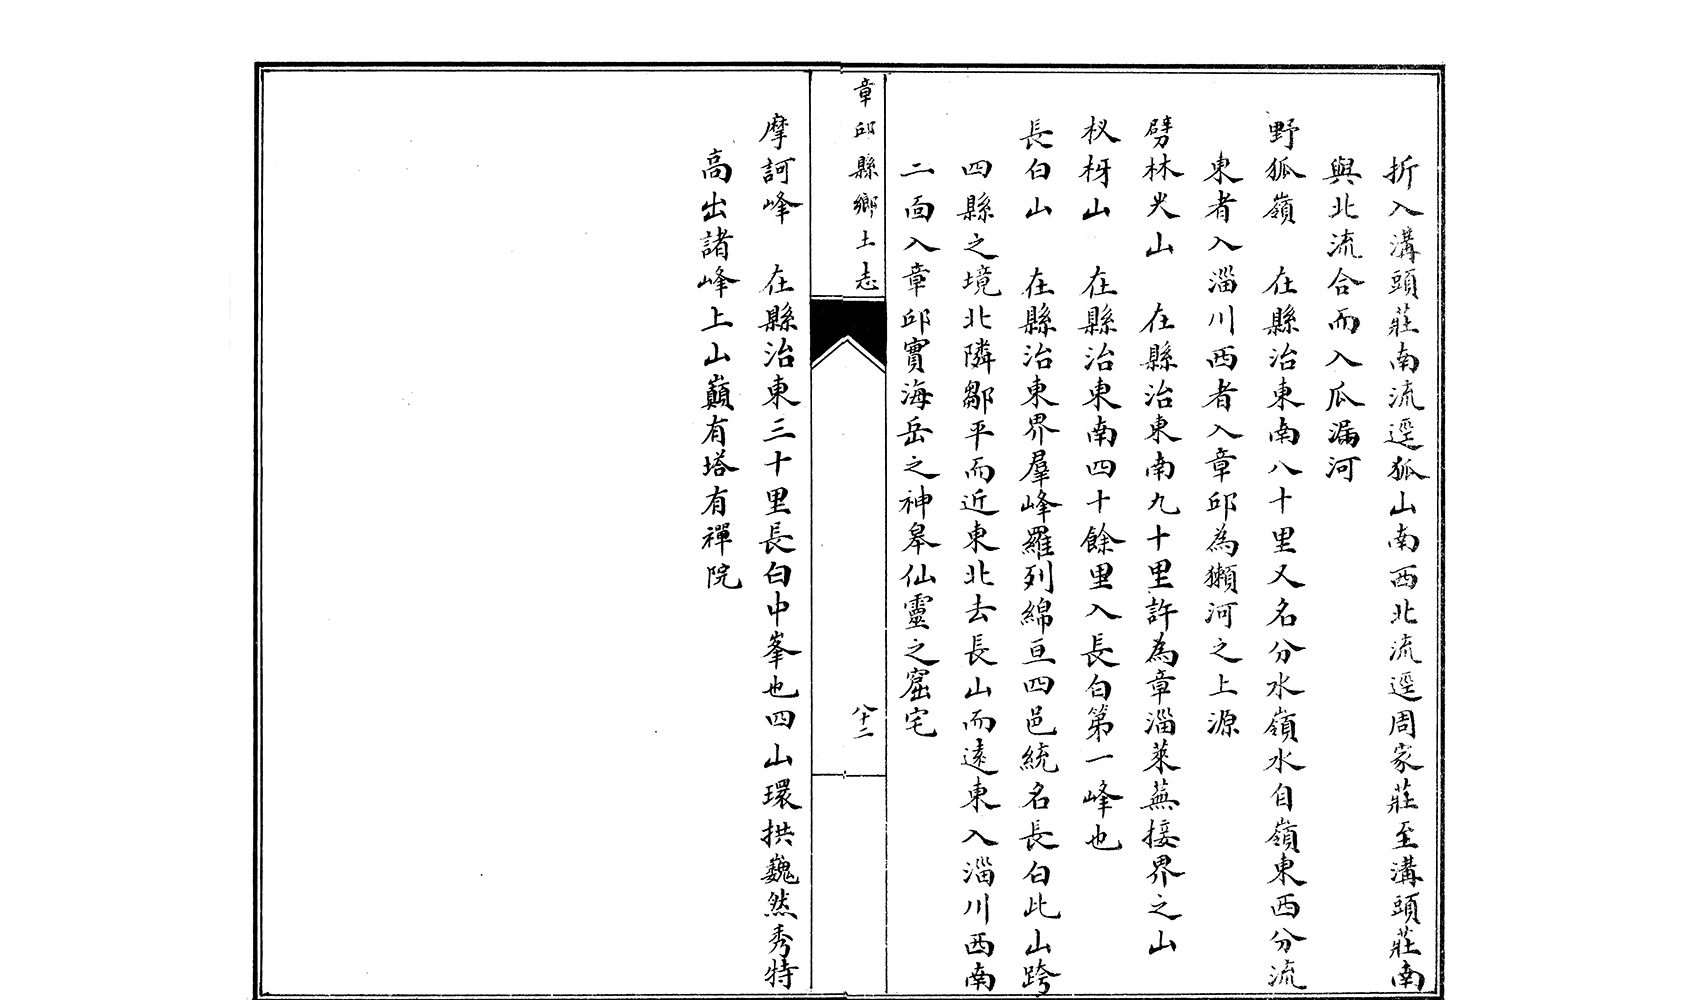 折入溝頭莊南流逕狐山南西北流逕周家莊至溝頭莊南
與北流合而入瓜漏河
野狐嶺　在縣治東南八十里又名分水嶺水自嶺東西分流
東者入淄川西者入章邱為獺河之上源
劈林尖山　在縣治東南九十里許為章淄萊蕪接界之山
杈枒山　在縣治東南四十餘里入長白第一峰也
長白山　在縣治東界羣峰羅列綿亘四邑統名長白此山跨
四縣之境北隣鄒平而近東北去長山而遠東入淄川西南
二面入章邱實海岳之神皋仙靈之窟宅
章邱縣鄉土志
八十二
摩訶峰　在縣治東三十里長白中峯也四山環拱巍然秀特
高出諸峰上山巔有塔有禪院